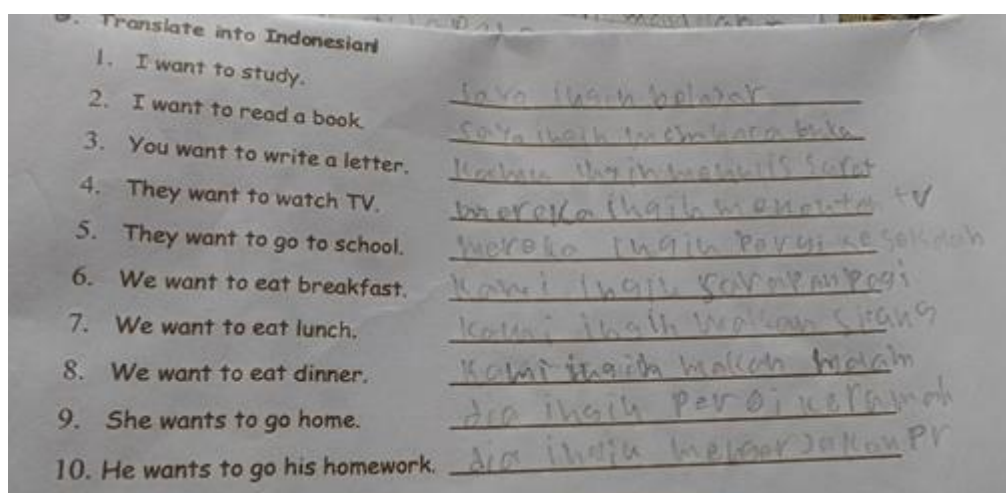 Translate into Indonesian!
1. I want to study. saya ingin belajar
2. I want to read a book. saya ingin membaca buku
3. You want to write a letter. Kamu ingin menulis surat
4. They want to watch TV. mereka ingin menonton tv
5. They want to go to school. Mereka ingin Pergi ke sekolah
6. We want to eat breakfast. Kami ingin sarapan Pagi
7. We want to eat lunch. Kami ingin makan siang
8. We want to eat dinner. Kami ingin makan malam
9. She wants to go home. dia ingin Pergi kerumah
10. He wants to go his homework. dia ingin mengerjakan Pr